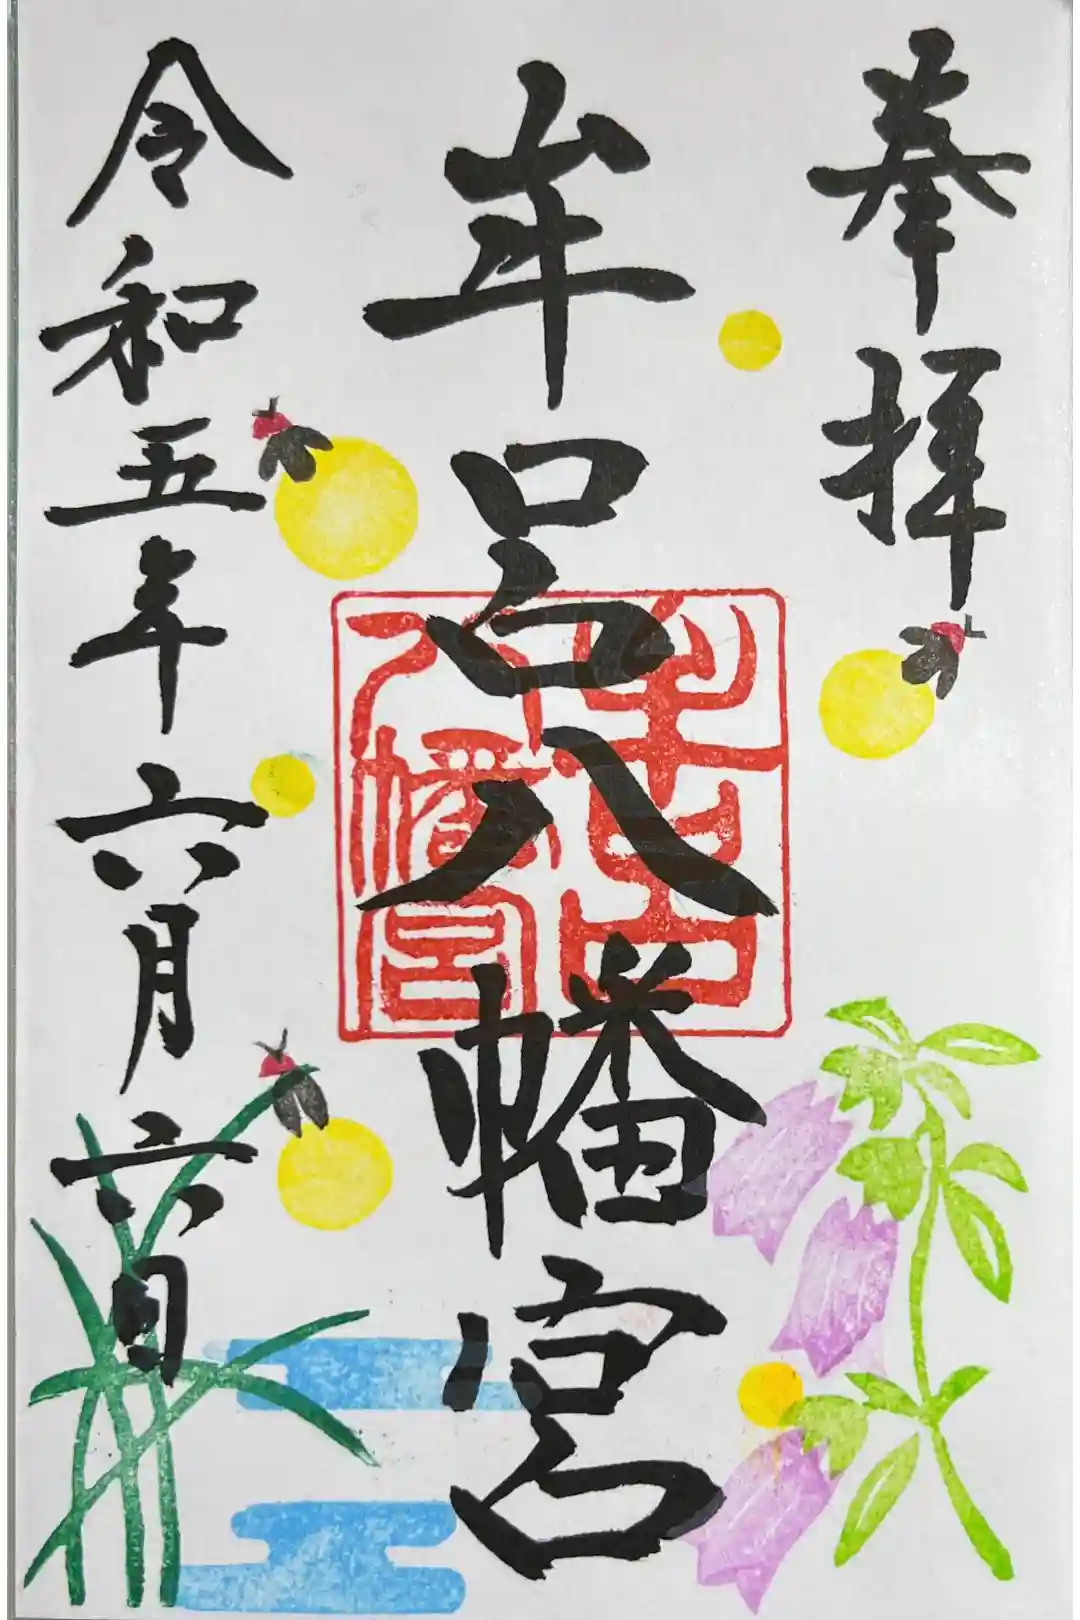 奉拝
牟呂八幡宮
牟呂八幡宮
令和五年六月六日